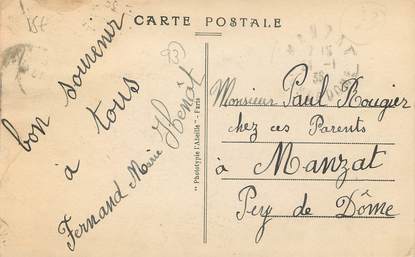 CARTE POSTALE
bon souvenir
à tous
Fernand Marie
"Phototypie l'Abeille" - Paris
Monsieur Paul Rougier
chez ces Parents
à Manzat
Puy de Dôme